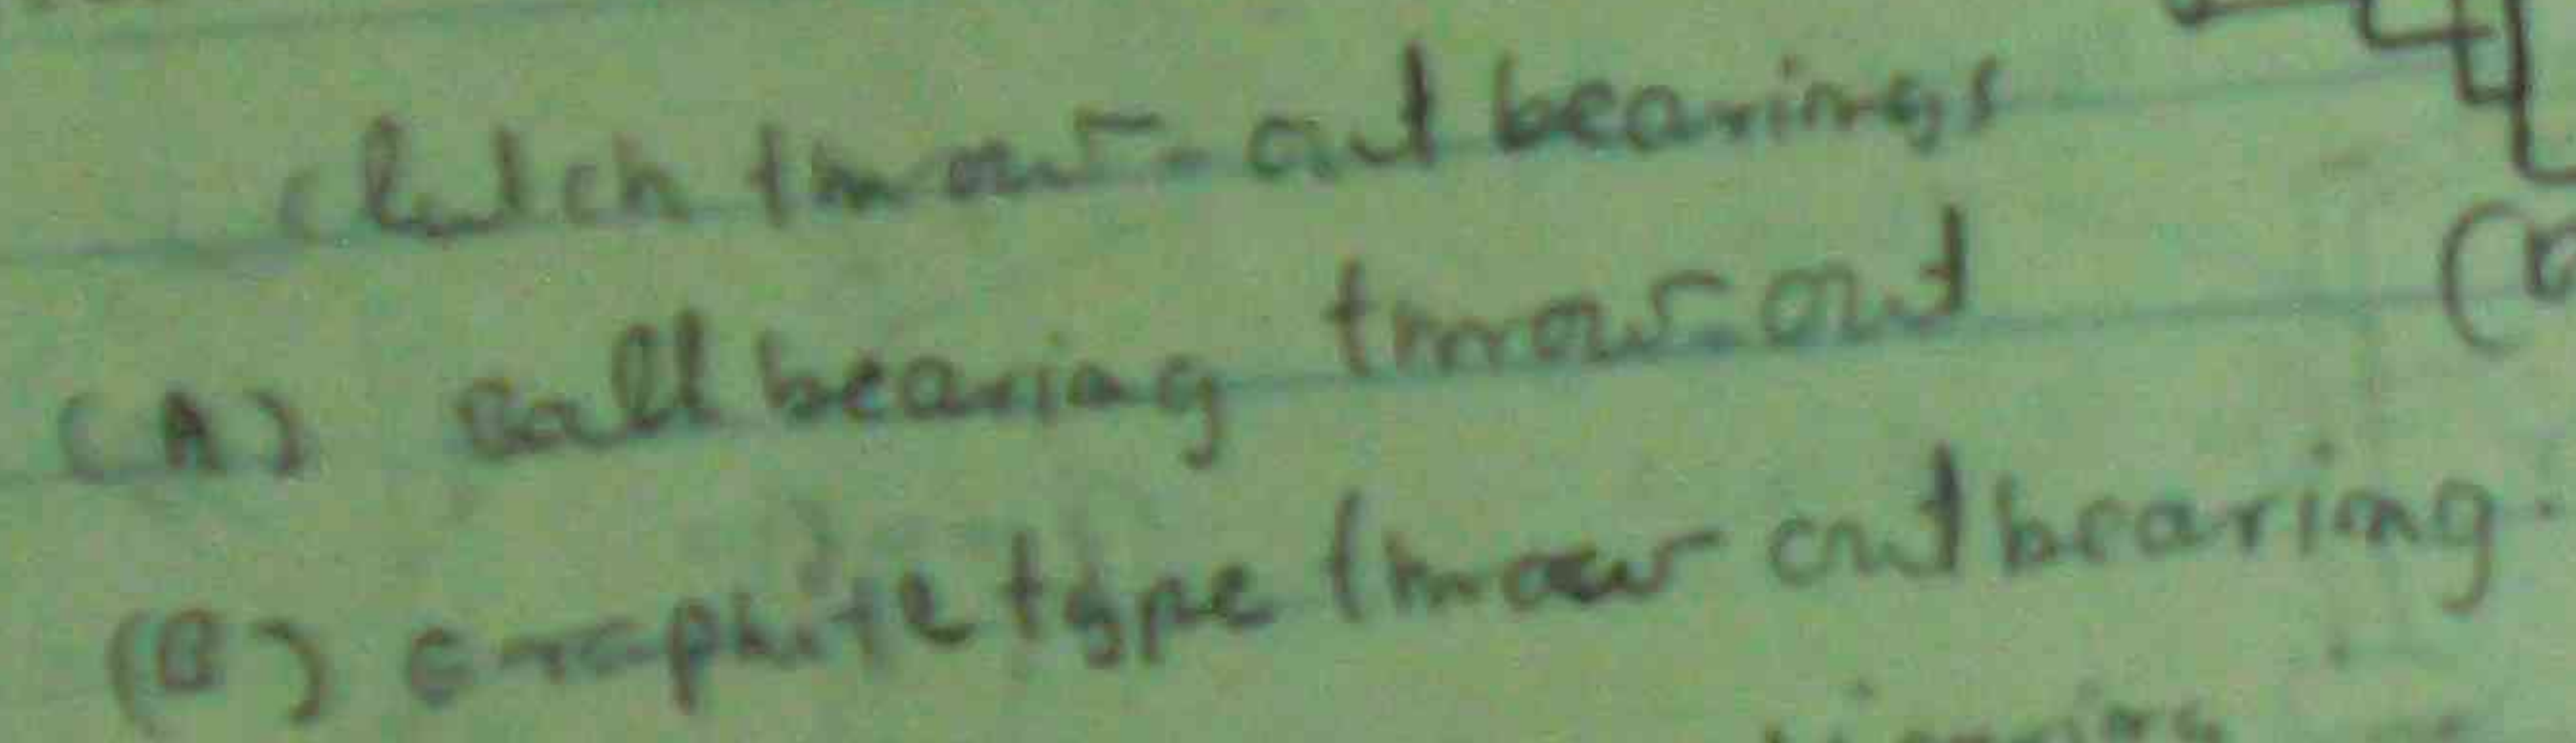 Clutch throw-out bearings
(A) Ball bearing throw-out
(B) Graphite type throw out bearing.